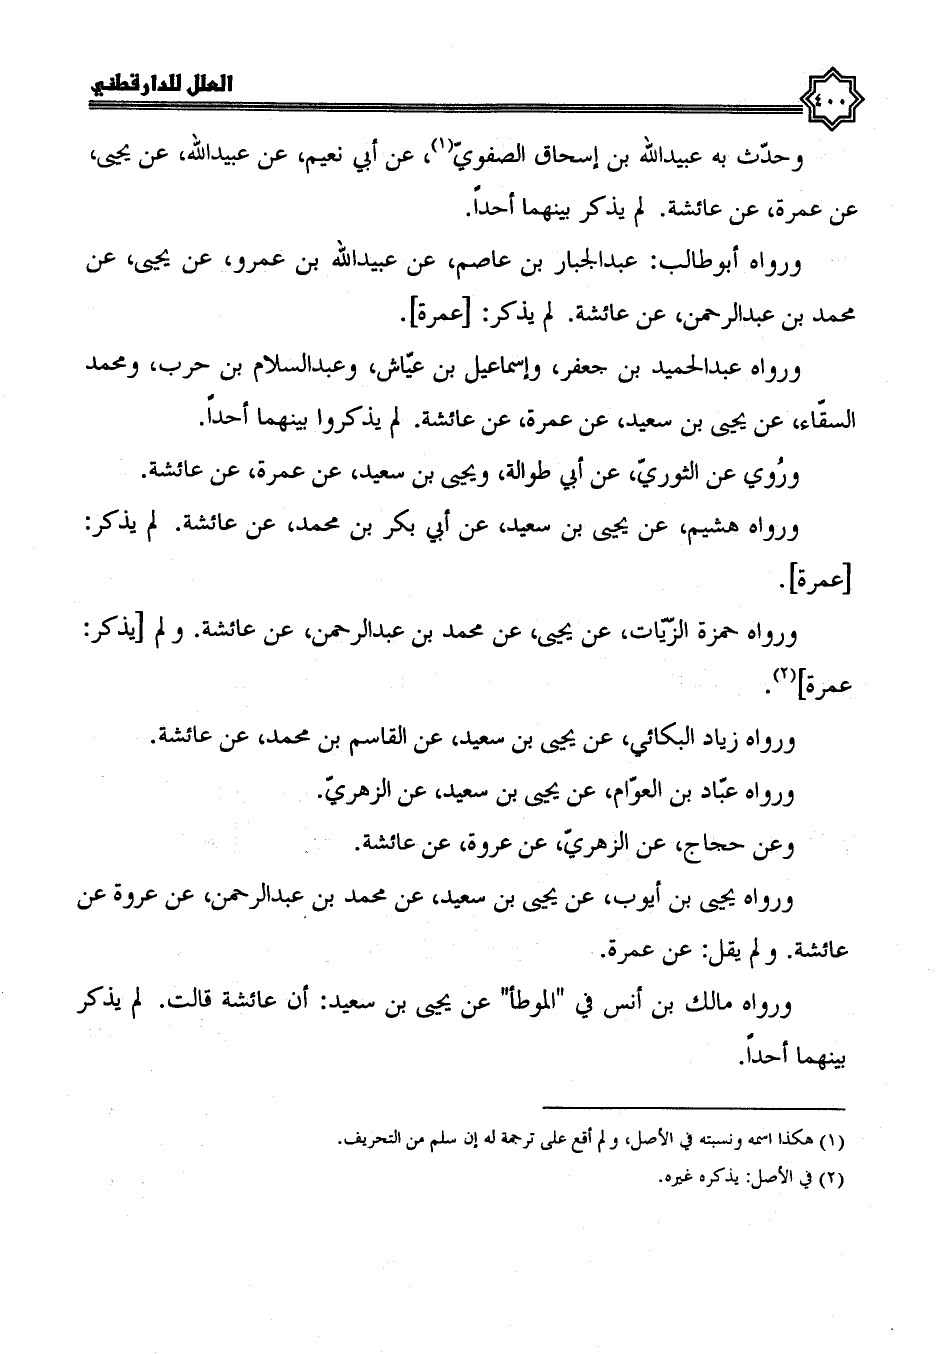 العلل للدارقطني
٤٠٠
وحدّث به عبيدالله بن إسحاق الصفويّ(١)، عن أبي نعيم، عن عبيدالله، عن يحيى،
عن عمرة، عن عائشة. لم يذكر بينهما أحداً.
ورواه أبوطالب: عبدالجبار بن عاصم، عن عبيدالله بن عمرو، عن يحيى، عن
محمد بن عبدالرحمن، عن عائشة. لم يذكر: [عمرة].
ورواه عبدالحميد بن جعفر، وإسماعيل بن عيّاش، وعبدالسلام بن حرب، ومحمد
السقّاء، عن يحيى بن سعيد، عن عمرة، عن عائشة. لم يذكروا بينهما أحداً.
ورُوي عن الثوريّ، عن أبي طوالة، ويحيى بن سعيد، عن عمرة، عن عائشة.
ورواه هشيم، عن يحيى بن سعيد، عن أبي بكر بن محمد، عن عائشة. لم يذكر:
[عمرة].
ورواه حمزة الزّيّات، عن يحيى، عن محمد بن عبدالرحمن، عن عائشة. و لم [يذكر:
عمرة](٢).
ورواه زياد البكائي، عن يحيى بن سعيد، عن القاسم بن محمد، عن عائشة.
ورواه عبّاد بن العوّام، عن يحيى بن سعيد، عن الزهريّ.
وعن حجاج، عن الزهريّ، عن عروة، عن عائشة.
ورواه يحيى بن أيوب، عن يحيى بن سعيد، عن محمد بن عبدالرحمن، عن عروة عن
عائشة. و لم يقل: عن عمرة.
ورواه مالك بن أنس في "الموطأ" عن يحيى بن سعيد: أن عائشة قالت. لم يذكر
بينهما أحداً.
(١) هكذا اسمه ونسبته في الأصل، و لم أقع على ترجمة له إن سلم من التحريف.
(٢) في الأصل: يذكره غيره.